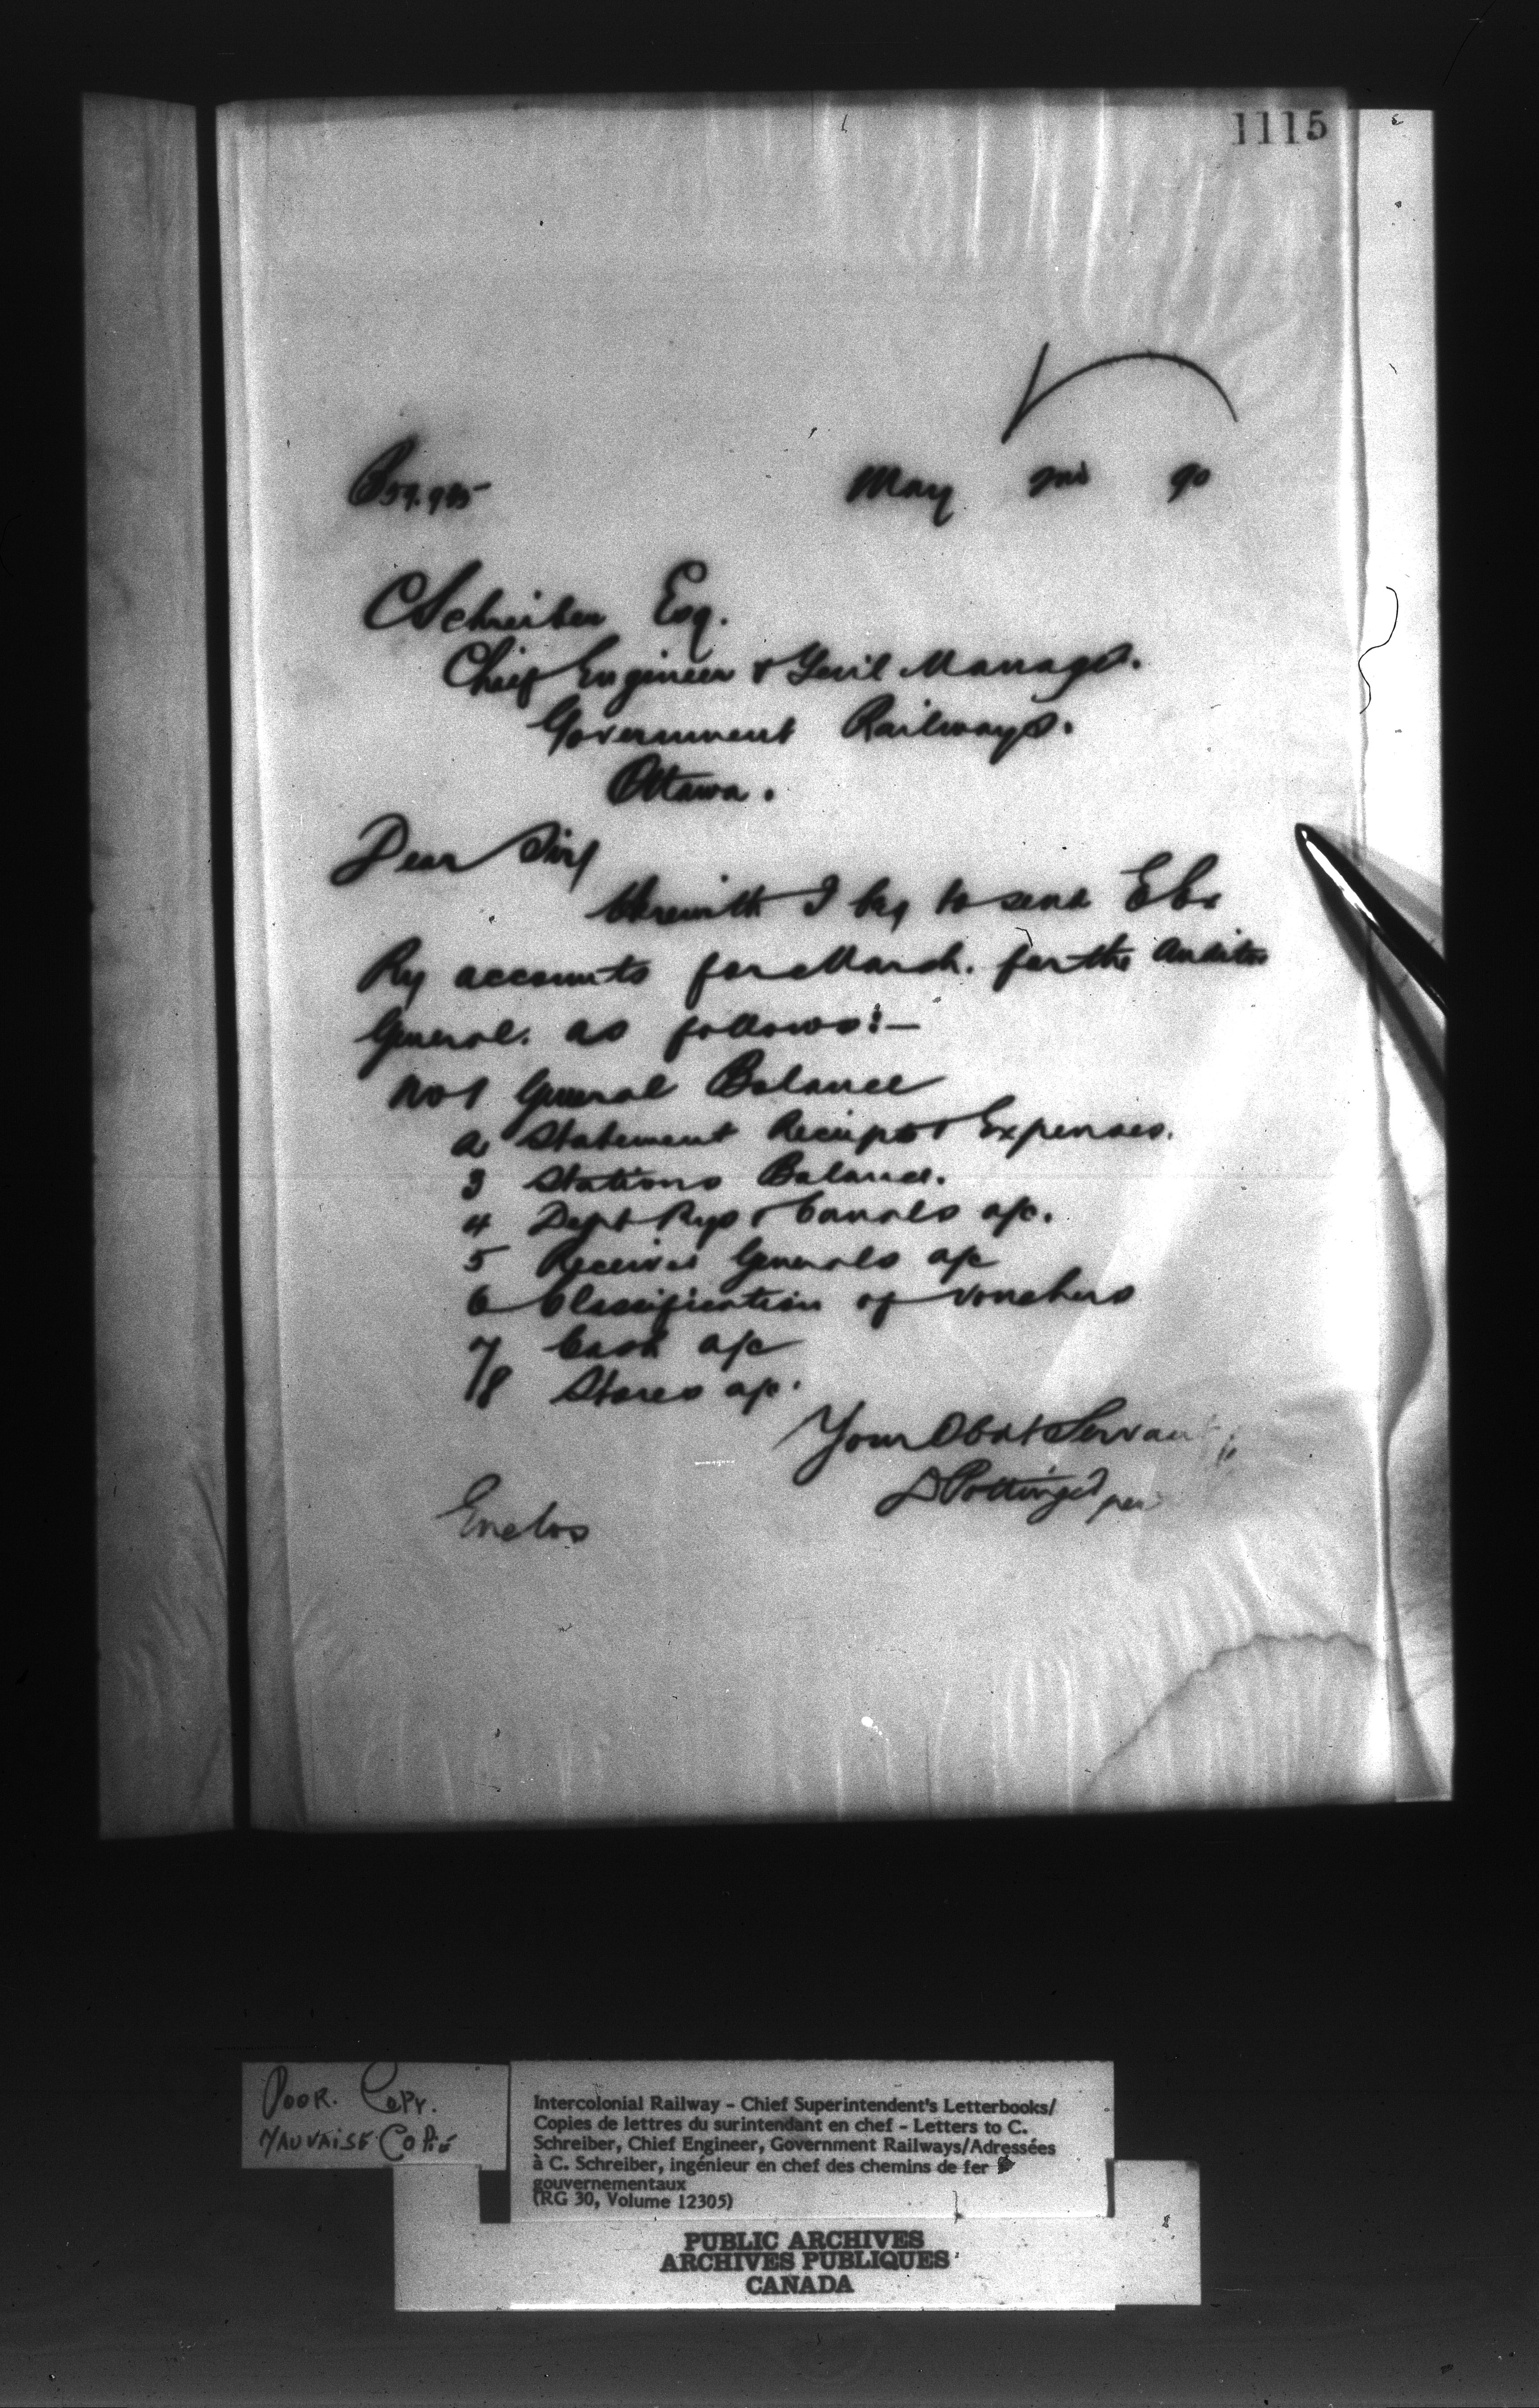 1115
May 2nd 90
C Schreiber Esq.
Chief Engineer & Genl Manager.
Government Railways.
Ottawa.
Dear Sir/
Herewith I beg to send
Ry accounts for March. for the Auditor
General. as follows:—
No 1 General Balance
2 Statement Receipts & Expenses.
3 Stations Balance.
4 Dept Rys & Canals a/c.
5 Receiver Generals a/c
6 Classification of Vouchers
7 Cash a/c
8 Stores a/c.
Your Obdt Servant
D Pottinger per
Enclos
POOR. COPY.
MAUVAISE COPIE
Intercolonial Railway – Chief Superintendent's Letterbooks/
Copies de lettres du surintendant en chef – Letters to C.
Schreiber, Chief Engineer, Government Railways/Adressées
à C. Schreiber, ingénieur en chef des chemins de fer
gouvernementaux
(RG 30, Volume 12305)
PUBLIC ARCHIVES
ARCHIVES PUBLIQUES
CANADA